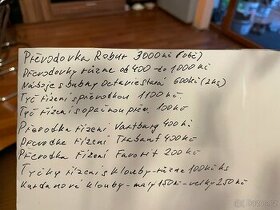 Převodovka Robur 3000Kč
Převodovky různé od 400 do 1000Kč
Náboje s bubny Octavie stará 600Kč (2Ks)
Tyč řízení s převodkou 1100Kč
Tyč řízení s opačnou pím. 100Kč
Převodka řízení Vartburg 400Kč
Převodka řízení Trabant 400Kč
Převodka řízení Favorit 200Kč
Tyčky řízení s klouby různe 100Kč ks
Kardanové klouby - malý 150Kč - velký 250Kč